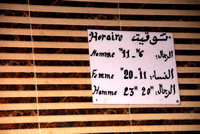 Horaire توقيت
Homme "11 - "6 الرجال:
Femme "20-11 النساء:
Homme 23" 20" الرجال: